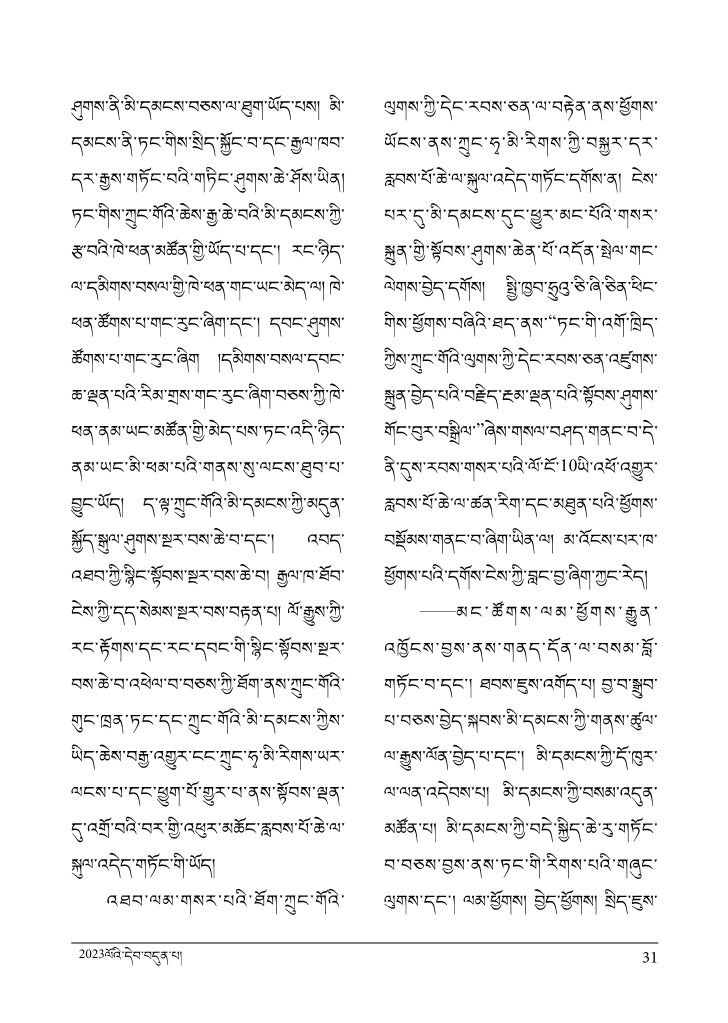 ཤུགས་ནི་མི་དམངས་བཅས་ལ་ཐུག་ཡོད་པས། མི་
དམངས་ནི་ཏང་གིས་སྲིད་སྐྱོང་བ་དང་རྒྱལ་ཁབ་
དར་རྒྱས་གཏོང་བའི་གཏིང་ཤུགས་ཆེ་ཤོས་ཡིན།
ཏང་གིས་ཀྲུང་གོའི་ཆེས་རྒྱ་ཆེ་བའི་མི་དམངས་ཀྱི་
རྩ་བའི་ཁེ་ཕན་མཚོན་གྱི་ཡོད་པ་དང་། རང་ཉིད་
ལ་དམིགས་བསལ་གྱི་ཁེ་ཕན་གང་ཡང་མེད་ལ། ཁེ་
ཕན་ཚོགས་པ་གང་རུང་ཞིག་དང་། དབང་ཤུགས་
ཚོགས་པ་གང་རུང་ཞིག །དམིགས་བསལ་དབང་
ཆ་ལྡན་པའི་རིམ་གྲས་གང་རུང་ཞིག་བཅས་ཀྱི་ཁེ་
ཕན་ནམ་ཡང་མཚོན་གྱི་མེད་པས་ཏང་འདི་ཉིད་
ནམ་ཡང་མི་ཕམ་པའི་གནས་སུ་ལངས་ཐུབ་པ་
བྱུང་ཡོད། ད་ལྟ་ཀྲུང་གོའི་མི་དམངས་ཀྱི་མདུན་
སྐྱོད་སྒུལ་ཤུགས་སྔར་བས་ཆེ་བ་དང་། འབད་
འཐབ་ཀྱི་སྙིང་སྟོབས་སྔར་བས་ཆེ་བ། རྒྱལ་ཁ་ཐོབ་
ངེས་ཀྱི་དད་སེམས་སྔར་བས་བརྟན་པ། ལོ་རྒྱུས་ཀྱི་
རང་རྟོགས་དང་རང་དབང་གི་སྙིང་སྟོབས་སྔར་
བས་ཆེ་བ་འཕེལ་བ་བཅས་ཀྱི་ཐོག་ནས་ཀྲུང་གོའི་
གུང་ཁྲན་ཏང་དང་ཀྲུང་གོའི་མི་དམངས་ཀྱིས་
ཡིད་ཆེས་བརྒྱ་འགྱུར་ངང་ཀྲུང་ཧྭ་མི་རིགས་ཡར་
ལངས་པ་དང་ཕྱུག་པོ་གྱུར་པ་ནས་སྟོབས་ལྡན་
དུ་འགྲོ་བའི་བར་གྱི་འཕུར་མཆོང་རླབས་པོ་ཆེ་ལ་
སྐུལ་འདེད་གཏོང་གི་ཡོད།
འཐབ་ལམ་གསར་པའི་ཐོག་ཀྲུང་གོའི་
ལུགས་ཀྱི་དེང་རབས་ཅན་ལ་བརྟེན་ནས་ཕྱོགས་
ཡོངས་ནས་ཀྲུང་ཧྭ་མི་རིགས་ཀྱི་བསྐྱར་དར་
རླབས་པོ་ཆེ་ལ་སྐུལ་འདེད་གཏོང་དགོས་ན། ངེས་
པར་དུ་མི་དམངས་དུང་ཕྱུར་མང་པོའི་གསར་
སྐྲུན་གྱི་སྟོབས་ཤུགས་ཆེན་པོ་འདོན་སྤེལ་གང་
ལེགས་བྱེད་དགོས། སྤྱི་ཁྱབ་ཧྲུའུ་ཅི་ཞི་ཅིན་ཕིང་
གིས་ཕྱོགས་བཞིའི་ཐད་ནས་“ཏང་གི་འགོ་ཁྲིད་
ཀྱིས་ཀྲུང་གོའི་ལུགས་ཀྱི་དེང་རབས་ཅན་འཛུགས་
སྐྲུན་བྱེད་པའི་བརྗིད་རྔམ་ལྡན་པའི་སྟོབས་ཤུགས་
གོང་བུར་བསྒྲིལ་”ཞེས་གསལ་བཤད་གནང་བ་དེ་
ནི་དུས་རབས་གསར་པའི་ལོ་ངོ་10ཡི་འཕོ་འགྱུར་
རླབས་པོ་ཆེ་ལ་ཚན་རིག་དང་མཐུན་པའི་ཕྱོགས་
བསྡོམས་གནང་བ་ཞིག་ཡིན་ལ། མ་འོངས་པར་ཁ་
ཕྱོགས་པའི་དགོས་ངེས་ཀྱི་བླང་བྱ་ཞིག་ཀྱང་རེད།
——མང་ཚོགས་ལམ་ཕྱོགས་རྒྱུན་
འཁྱོངས་བྱས་ནས་གནད་དོན་ལ་བསམ་བློ་
གཏོང་བ་དང་། ཐབས་ཇུས་འགོད་པ། བྱ་བ་སྒྲུབ་
པ་བཅས་བྱེད་སྐབས་མི་དམངས་ཀྱི་གནས་ཚུལ་
ལ་རྒྱུས་ལོན་བྱེད་པ་དང་། མི་དམངས་ཀྱི་དོ་ཁུར་
ལ་ལན་འདེབས་པ། མི་དམངས་ཀྱི་བསམ་འདུན་
མཚོན་པ། མི་དམངས་ཀྱི་བདེ་སྐྱིད་ཆེ་རུ་གཏོང་
བ་བཅས་བྱས་ནས་ཏང་གི་རིགས་པའི་གཞུང་
ལུགས་དང་། ལམ་ཕྱོགས། བྱེད་ཕྱོགས། སྲིད་ཇུས་
2023ལོའི་དེབ་བདུན་པ།
31